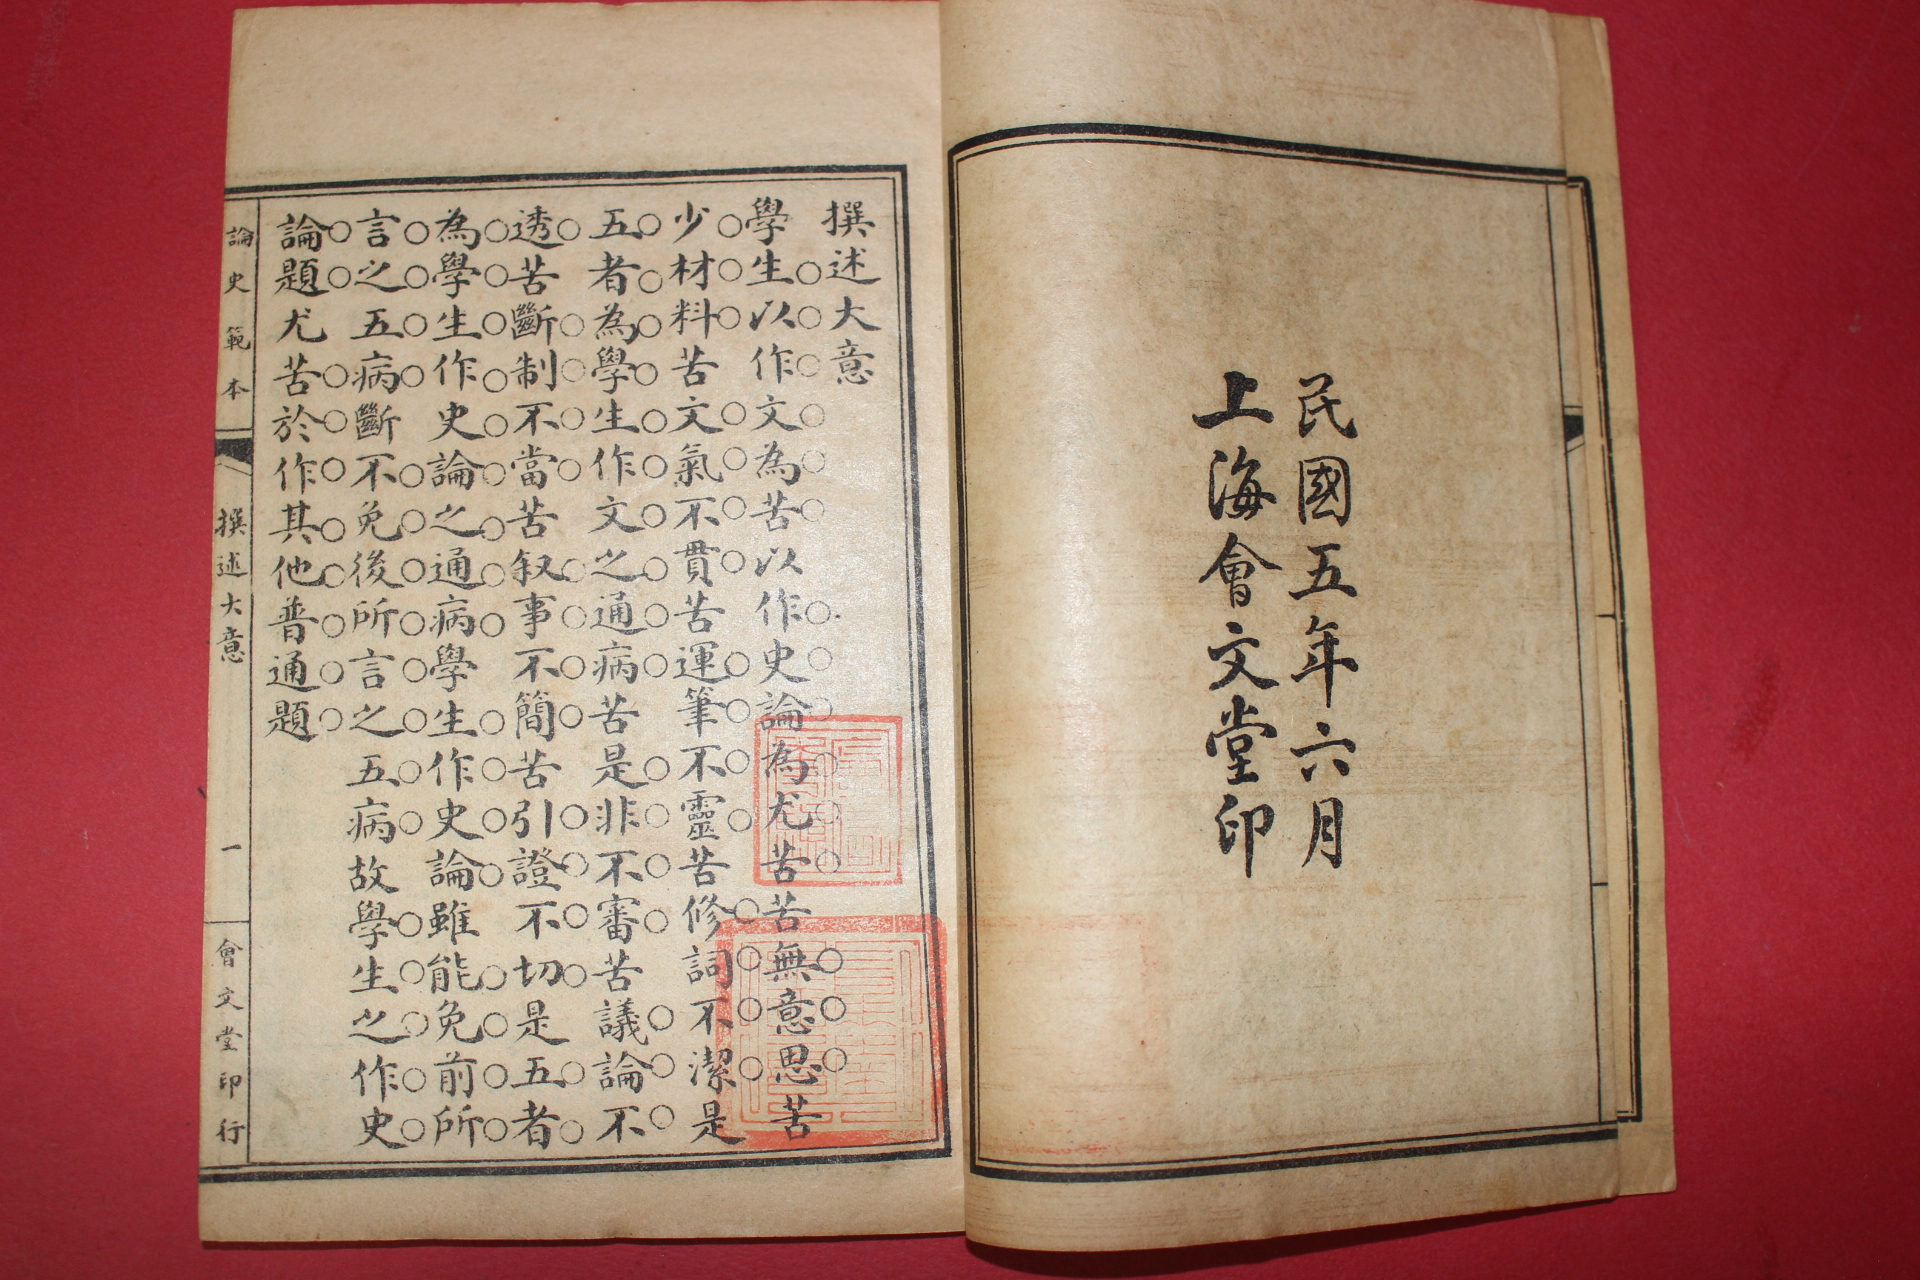 民國五年六月
上海會文堂印
撰述大意
學生以作文為苦以作史論為尤苦苦無意思苦
少材料苦文氣不貫苦運筆不靈苦修詞不潔是
五者為學生作文之通病苦是非不審苦議論不
透苦斷制不當苦叙事不簡苦引證不切是五者
為學生作史論之通病學生作史論雖能免前所
言之五病斷不免後所言之五病故學生之作史
論題尤苦於作其他普通題
論史範本
撰述大意
一
會文堂印行